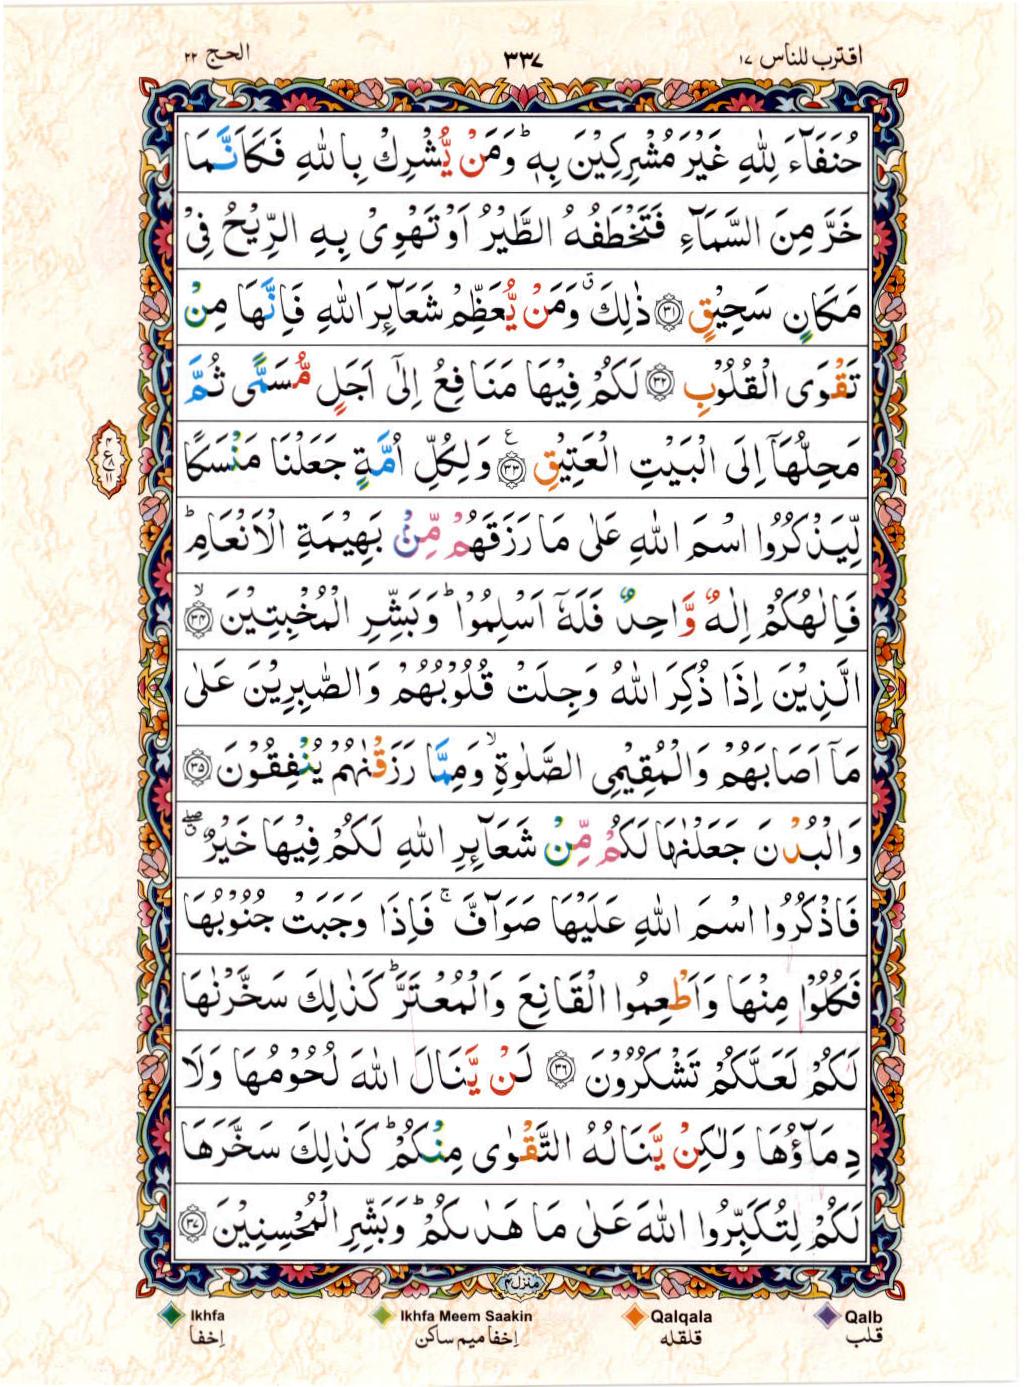 اقترب للناس ١٧ ٣٣٧ الحج ٢٢
حُنَفَآءَ لِلّٰهِ غَيْرَ مُشْرِكِيْنَ بِهٖ ؕ وَمَنْ يُّشْرِكْ بِاللّٰهِ فَكَاَنَّمَا
خَرَّ مِنَ السَّمَآءِ فَتَخْطَفُهُ الطَّيْرُ اَوْ تَهْوِىْ بِهِ الرِّيْحُ فِىْ
مَكَانٍ سَحِيْقٍ ﴿٣١﴾ ذٰلِكَ ۗ وَمَنْ يُّعَظِّمْ شَعَآئِرَ اللّٰهِ فَاِنَّهَا مِنْ
تَقْوَى الْقُلُوْبِ ﴿٣٢﴾ لَكُمْ فِيْهَا مَنَافِعُ اِلٰٓى اَجَلٍ مُّسَمًّى ثُمَّ
مَحِلُّهَاۤ اِلَى الْبَيْتِ الْعَتِيْقِ ﴿٣٣﴾ ع وَلِكُلِّ اُمَّةٍ جَعَلْنَا مَنْسَكًا
لِّيَذْكُرُوا اسْمَ اللّٰهِ عَلٰى مَا رَزَقَهُمْ مِّنْۢ بَهِيْمَةِ الْاَنْعَامِ ؕ
فَاِلٰهُكُمْ اِلٰهٌ وَّاحِدٌ فَلَهٗۤ اَسْلِمُوْا ؕ وَبَشِّرِ الْمُخْبِتِيْنَ ۙ ﴿٣٤﴾
الَّذِيْنَ اِذَا ذُكِرَ اللّٰهُ وَجِلَتْ قُلُوْبُهُمْ وَالصّٰبِرِيْنَ عَلٰى
مَاۤ اَصَابَهُمْ وَالْمُقِيْمِى الصَّلٰوةِ ۙ وَمِمَّا رَزَقْنٰهُمْ يُنْفِقُوْنَ ﴿٣٥﴾
وَالْبُدْنَ جَعَلْنٰهَا لَكُمْ مِّنْ شَعَآئِرِ اللّٰهِ لَكُمْ فِيْهَا خَيْرٌ ۖق
فَاذْكُرُوا اسْمَ اللّٰهِ عَلَيْهَا صَوَآفَّ ۚ فَاِذَا وَجَبَتْ جُنُوْبُهَا
فَكُلُوْا مِنْهَا وَاَطْعِمُوا الْقَانِعَ وَالْمُعْتَرَّ ؕ كَذٰلِكَ سَخَّرْنٰهَا
لَكُمْ لَعَلَّكُمْ تَشْكُرُوْنَ ﴿٣٦﴾ لَنْ يَّنَالَ اللّٰهَ لُحُوْمُهَا وَلَا
دِمَآؤُهَا وَلٰكِنْ يَّنَالُهُ التَّقْوٰى مِنْكُمْ ؕ كَذٰلِكَ سَخَّرَهَا
لَكُمْ لِتُكَبِّرُوا اللّٰهَ عَلٰى مَا هَدٰىكُمْ ؕ وَبَشِّرِ الْمُحْسِنِيْنَ ﴿٣٧﴾
منزل ٤
Ikhfa Ikhfa Meem Saakin Qalqala Qalb
إخفا إخفا ميم ساكن قلقله قلب